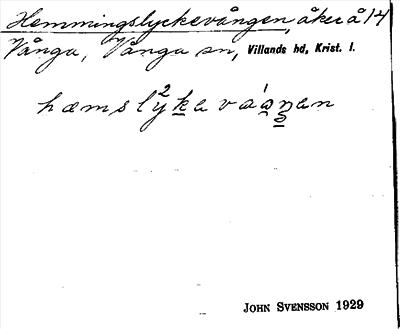 Hemmingslyckevången, åker å 14
Vånga, Vånga sn, Villands hd, Krist. l.
JOHN SVENSSON 1929